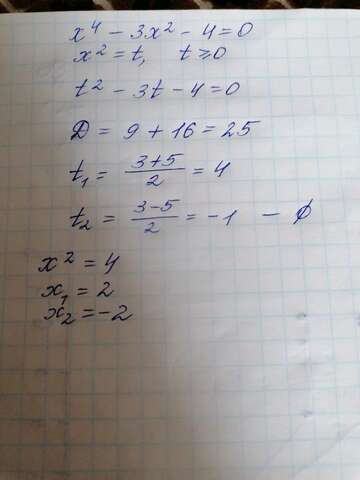 x⁴ − 3x² − 4 = 0
x² = t, t ⩾ 0
t² − 3t − 4 = 0
D = 9 + 16 = 25
t₁ = (3+5)/2 = 4
t₂ = (3−5)/2 = −1 − ∅
x² = 4
x₁ = 2
x₂ = −2